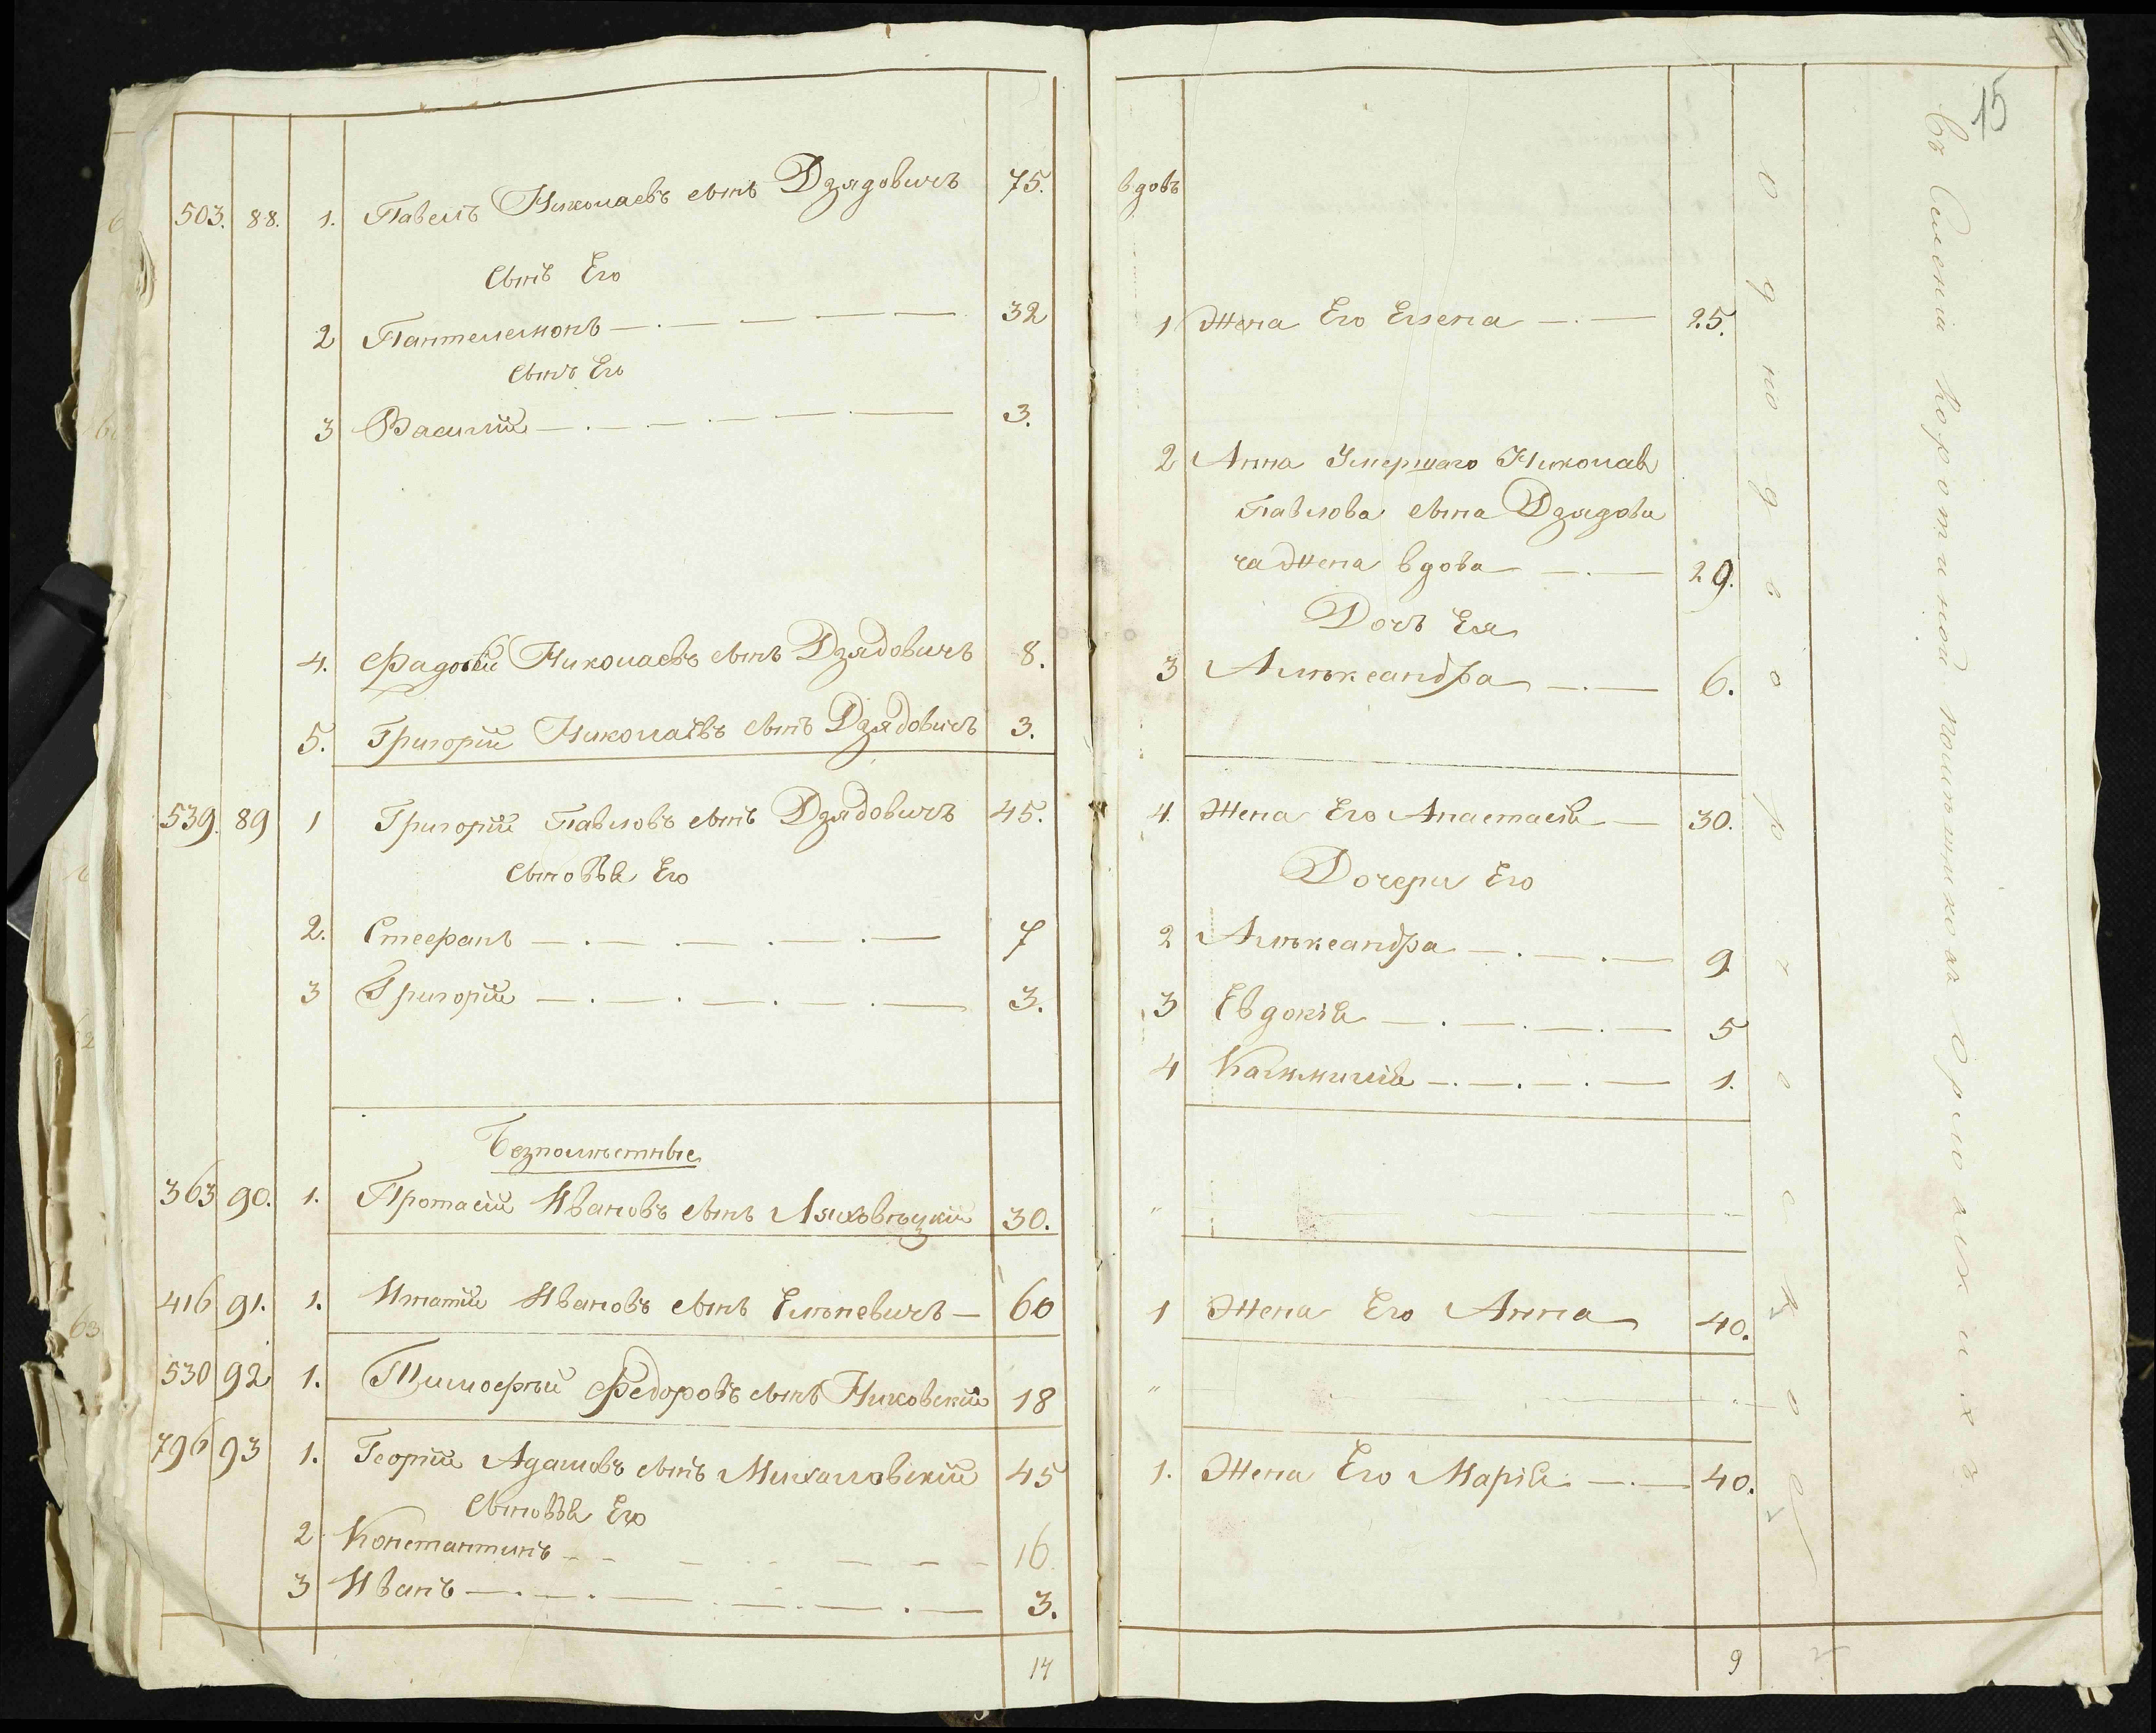 503. 88. 1. Павелъ Николаевъ сынъ Дзядовичъ 75.
сынъ Его
2 Пантелемонъ 32
сынъ Его
3 Василій 3.
4. Фадѣй Николаевъ сынъ Дзядовичъ 8.
5. Григорій Николаевъ сынъ Дзядовичъ 3.
539. 89 1 Григорій Павловъ сынъ Дзядовичъ 45.
сыновья Его
2. Стефанъ 7
3 Григорій 3.
Безпомѣстные
363 90. 1. Протасій Ивановъ сынъ 30.
416 91. 1. Игнатій Ивановъ сынъ 60
530 92 1. Тимофѣй Федоровъ сынъ 18
796 93 1. Георгій Адамовъ сынъ Михаловскій 45
сыновья Его
2 Константинъ 16.
3 Иванъ 3.
14
15
вдовъ
1 Жена Его Елена 25.
2 Анна Умершаго Николая
Павлова сына Дзядови
ча Жена вдова 29.
Дочь Ея
3 Алѣксандра 6.
4. Жена Его Анастасія 30.
Дочери Его
2 Алѣксандра 9
3 Евдокія 5
4 1.
1 Жена Его Анна 40.
1. Жена Его Марія 40.
9
Однодворческое
Въ Селеніи